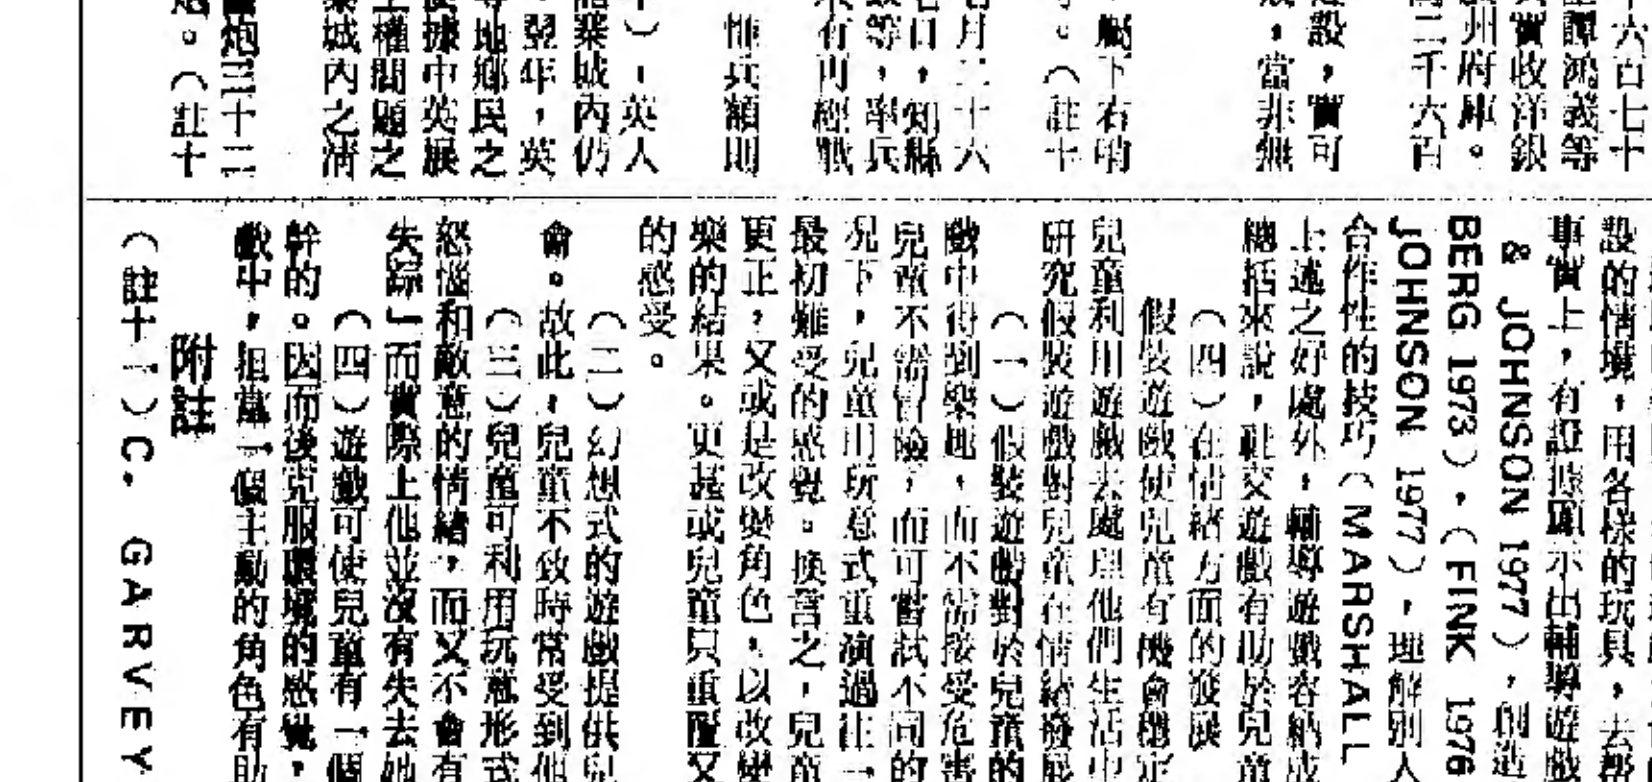 十六百七十
譚鴻義等
實收洋銀
州府庫。
二千六百
設,實可
,當非無
屬下右哨
。(註十
月二十六
日,知縣
等,率兵
有再經戰
惟兵額則
),英人
寨城內仍
翌年,英
等地鄉民之
據中英展
權問題之
城內之淸
炮三十二
。(註十
設的情境,用各樣的玩具,去幫
事實上,有證據顯示出輔導遊戲
& JOHNSON 1977),創造
BERG 1973),(FINK 1976
JOHNSON 1977),理解別人
合作性的技巧(MARSHALL
上述之好處外,輔導遊戲容納成
總括來說,社交遊戲有助於兒童
(四)在情緒方面的發展
假裝遊戲使兒童有機會穩定
兒童利用遊戲去處理他們生活中
研究假裝遊戲對兒童在情緒發展
(一)假裝遊戲對於兒童的
戲中得到樂趣,而不需接受危害
兒童不需冒險,而可嘗試不同的
況下,兒童用玩意式重演過往一
最初難受的感覺。換言之,兒童
更正,又或是改變角色,以改變
樂的結果。更甚或兒童只重覆又
的感受。
(二)幻想式的遊戲提供兒
會。故此,兒童不致時常受到他
(三)兒童可利用玩意形式
怒惱和敵意的情緒,而又不會有
失踪」而實際上他並沒有失去她
(四)遊戲可使兒童有一個
幹的。因而後克服環境的感覺,
戲中,担當一個主動的角色有助
附註
(註十一)C. GARVEY